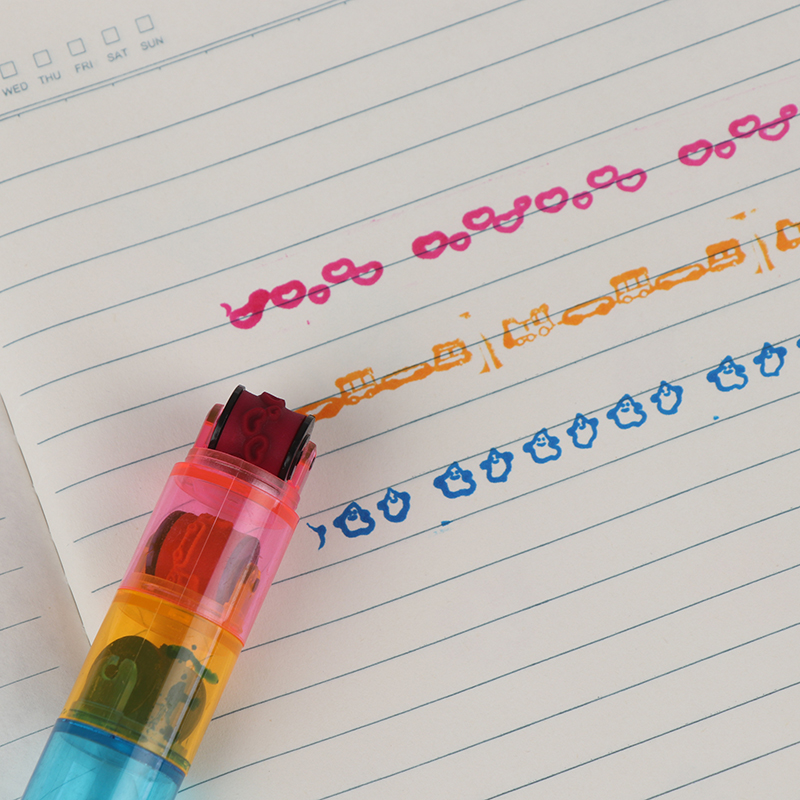 WED THU FRI SAT SUN